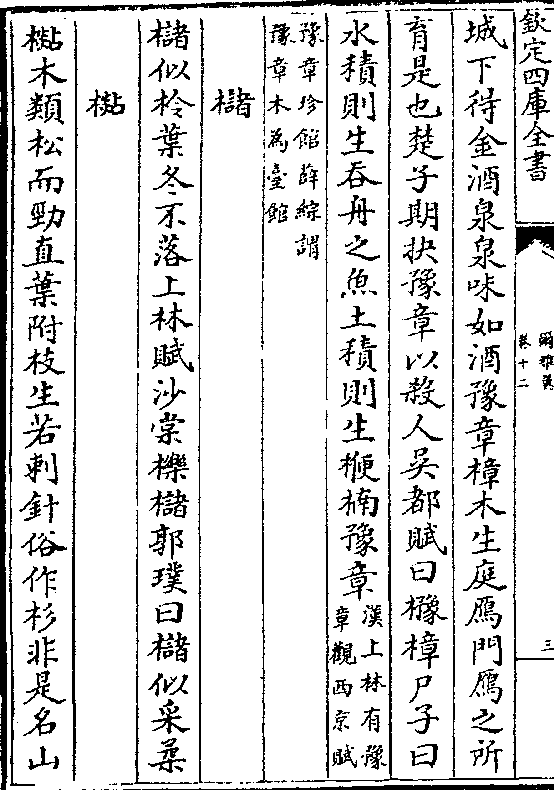 欽定四庫全書
爾雅翼
卷十二
三
城下待金酒泉泉味如酒豫章樟木生庭鴈門鴈之所
育是也楚子期抉豫章以殺人吳都賦曰櫲樟尸子曰
水積則生吞舟之魚土積則生楩楠豫章
漢上林有豫
章觀西京賦
豫章珍館薛綜謂
豫章木為臺館
櫧
櫧似柃葉冬不落上林賦沙棠櫟櫧郭璞曰櫧似采柔
煔
煔木類松而勁直葉附枝生若刺針俗作杉非是名山